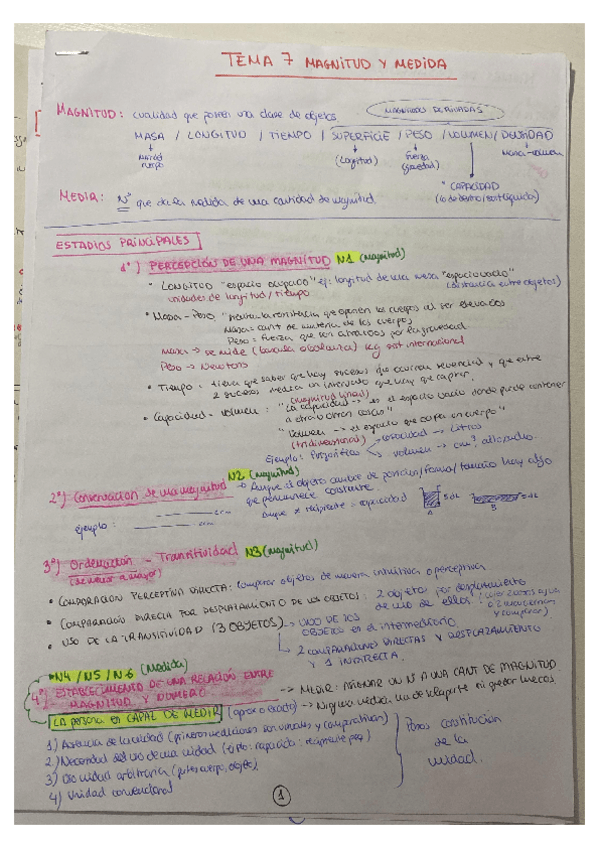 TEMA 7 MAGNITUD Y MEDIDA
MAGNITUD: cualidad que poseen una clase de objetos
MAGNITUDES DERIVADAS
MASA / LONGITUD / TIEMPO / SUPERFICIE / PESO / VOLUMEN / DENSIDAD
(Longitud) Fuerza (gravedad) Masa-volumen
"CAPACIDAD
MEDIR: Nº que da la medida de una cantidad de magnitud
ESTADIOS PRINCIPALES
1º) PERCEPCIÓN DE UNA MAGNITUD N1 (magnitud)
• LONGITUD "espacio ocupado" ej: longitud de una mesa "espacio vacío"
unidades de longitud / tiempo (distancia entre objetos)
• Masa - Peso resistencia que oponen los cuerpos al ser elevados
Masa: cant de materia de los cuerpos
Peso: fuerza que son atraídos por la gravedad
masa → se mide (báscula o balanza) kg sist internacional
Peso → Newtons
• Tiempo: tiene que saber que hay sucesos que ocurren y que entre
2 sucesos media un intervalo que hay que captar.
(magnitud lineal)
• Capacidad - volumen: "La capacidad → es el espacio vacío donde puede contener
a otra u otras cosas"
"Volumen → el espacio que ocupa un cuerpo"
(tridimensional)
Ejemplo: capacidad → Litros
volumen → cm³
N2 (magnitud)
2º) Conservación de una magnitud → Aunque el objeto cambie de posición/forma/tamaño hay algo
que permanece constante
ejemplo: aunque ≠ recipiente = capacidad
A B
3º) Ordenación - Transitividad N3 (magnitud)
(de menor a mayor)
• COMPARACIÓN PERCEPTIVA DIRECTA: comparar objetos de manera intuitiva o perceptiva
• COMPARACIÓN DIRECTA POR DESPLAZAMIENTO DE LOS OBJETOS: 2 objetos por desplazamiento
de uno de ellos
• USO DE LA TRANSITIVIDAD (3 OBJETOS) → UNO DE LOS
OBJETOS es el intermediario
→ 2 COMPARACIONES DIRECTAS Y DESPLAZAMIENTO
Y 1 INDIRECTA.
*N4 / N5 / N6 (Medida)
4º) ESTABLECIMIENTO DE UNA RELACIÓN ENTRE
MAGNITUD Y NÚMERO → MEDIR: ASIGNAR UN Nº A UNA CANT DE MAGNITUD
LA persona es CAPAZ DE MEDIR (aprox o exacto)
1) Ausencia de la unidad (primeras mediciones son visuales y comparativas)
2) Necesidad del uso de una unidad
3) Uso unidad arbitraria (partes cuerpo, objetos)
4) Unidad convencional
Pasos constitución
de la
unidad.
1